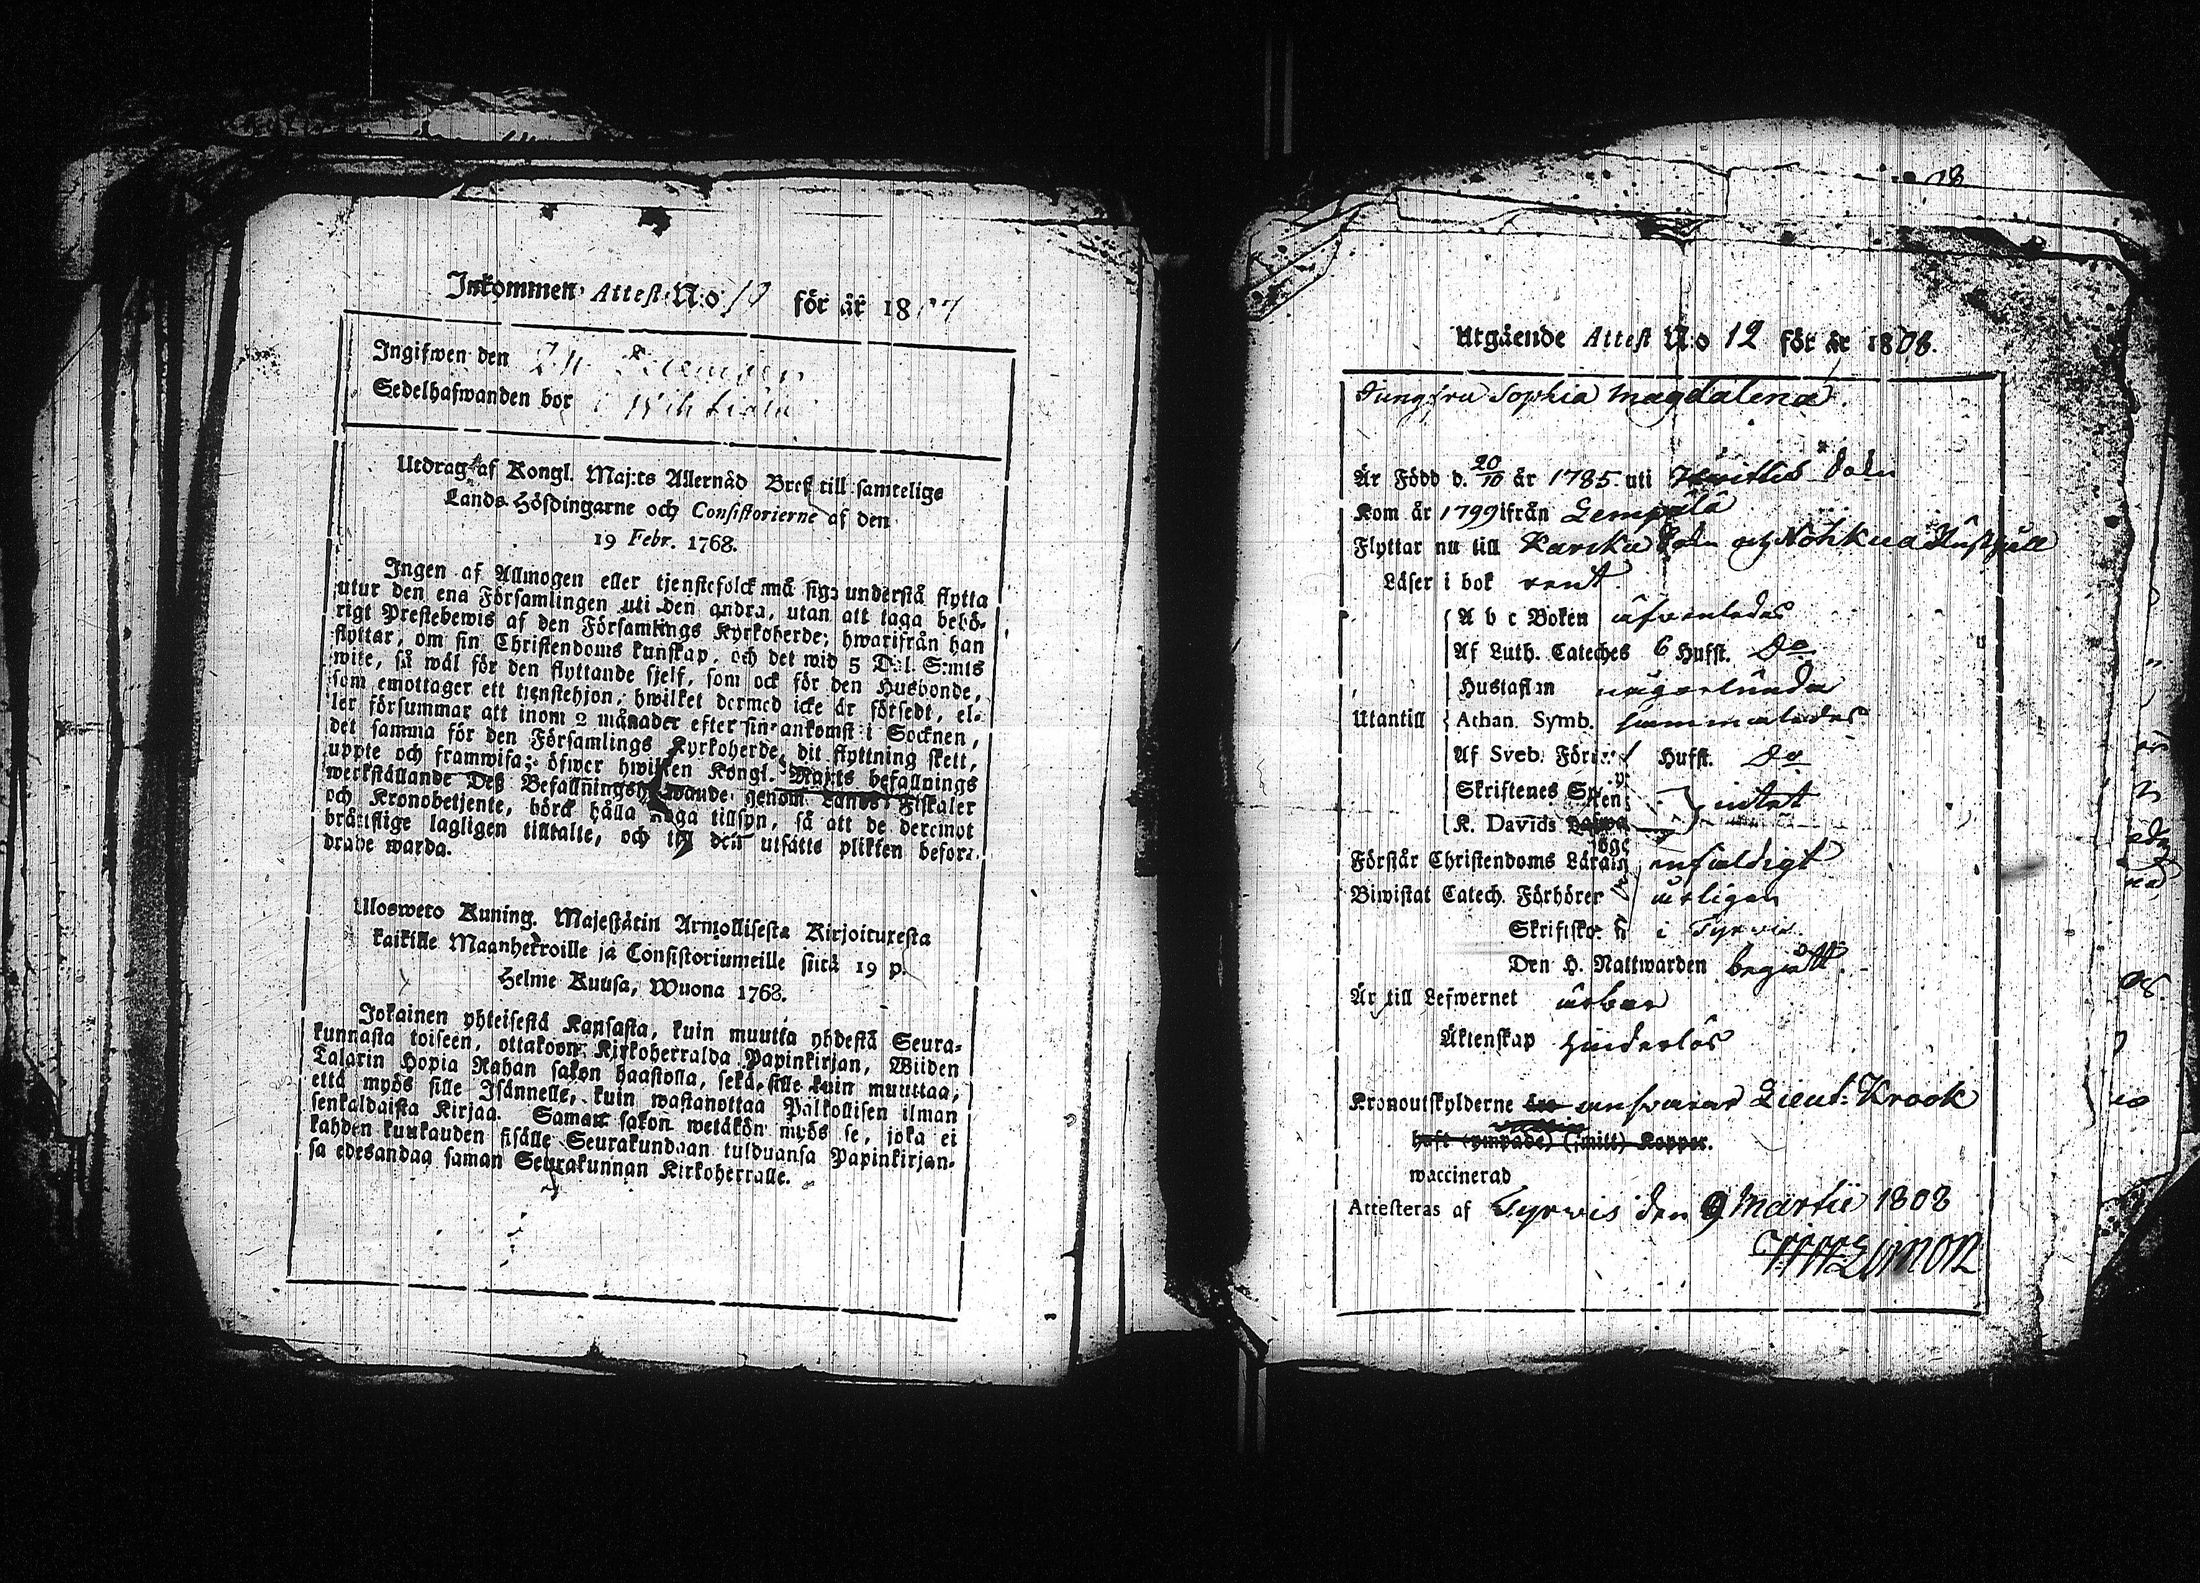 Inkommen Attest N:o 19 för år 1807
Ingifwen den
Sedelhafwanden bor i
Utdrag af Kongl. Maj:ts Allernåd Bref till samtelige
Lands Höfdingarne och Consistorierne af den
19 Febr. 1768.
Ingen af Allmogen eller tjenstefolck må sig understå flytta
utur den ena Församlingen uti den andra, utan att taga behö-
rigt Prestebewis af den Församlings Kyrkoherde, hwarifrån han
flyttar, om sin Christendoms kunskap, och det wid 5 Dal. S:mts
wite, så wäl för den flyttande sjelf, som ock för den Husbonde,
som emottager ett tjenstehjon, hwilket dermed icke är försedt, el-
ler försummar att inom 2 månader efter sin ankomst i Socknen,
det samma för den Församlings Kyrkoherde, dit flyttning skett,
uppte och framwisa; öfwer hwilken Kongl. Maj:ts befallnings
werkställande Deß Befallningshafwande genom Lands Fiskaler
och Kronobetjente, börck hålla noga tillsyn, så att de deremot
brättslige lagligen tilltalte, och till den utsatte plikten beford-
drade warda.
Ulosweto Kuning. Majestätin Armollisesta Kirjoituxesta
kaikille Maanherroille ja Consistoriumeille siitä 19 p.
Helme Kuusa, Wuona 1768.
Jokainen yhteisestä Kansasta, kuin muutta yhdestä Seura-
kunnasta toiseen, ottakoon Kirkoherralda Papinkirjan, Wiiden
Talarin Hopia Rahan sakon haastolla, sekä sille kuin muuttaa,
että myös sille Isännelle, kuin wastanottaa Palkollisen ilman
senkaldaista Kirjaa. Saman sakon wetäkön myös se, joka ei
kahden kuukauden sisälle Seurakundaan tulduansa Papinkirjan-
sa edesandaa saman Seurakunnan Kirkoherralle.
Utgående Attest N:o 12 för år 1808.
Jungfru Sophia Magdalena.
Är Född d. 20/10 år 1785 uti Socken
Kom år 1799 ifrån Lempälä
Flyttar nu till Karcku Sokn och Nohkua Rusthåll
Läser i bok rent
A b c Boken äfwenledes
Af Luth. Cateches 6 Hufst. Do
Hustaflan någorlunda
Utantill Athan. Symb. sammaledes
Af Sveb. Förkl. Hufst. Do
Skriftenes Spr
K. Davids intet
Förstår Christendoms Läran enfaldigt
Biwistat Catech. Förhörer årligen
Skriftsko. H i Tyrwis
Den H. Nattwarden begått.
Är till Lefwernet ärbar
Äktenskap hinderlös
Kronoutskylderne answarar Lieut: Krook
haft (ympade) (smitt) Koppor.
waccinerad
Attesteras af Tyrwis den 9 Martii 1808